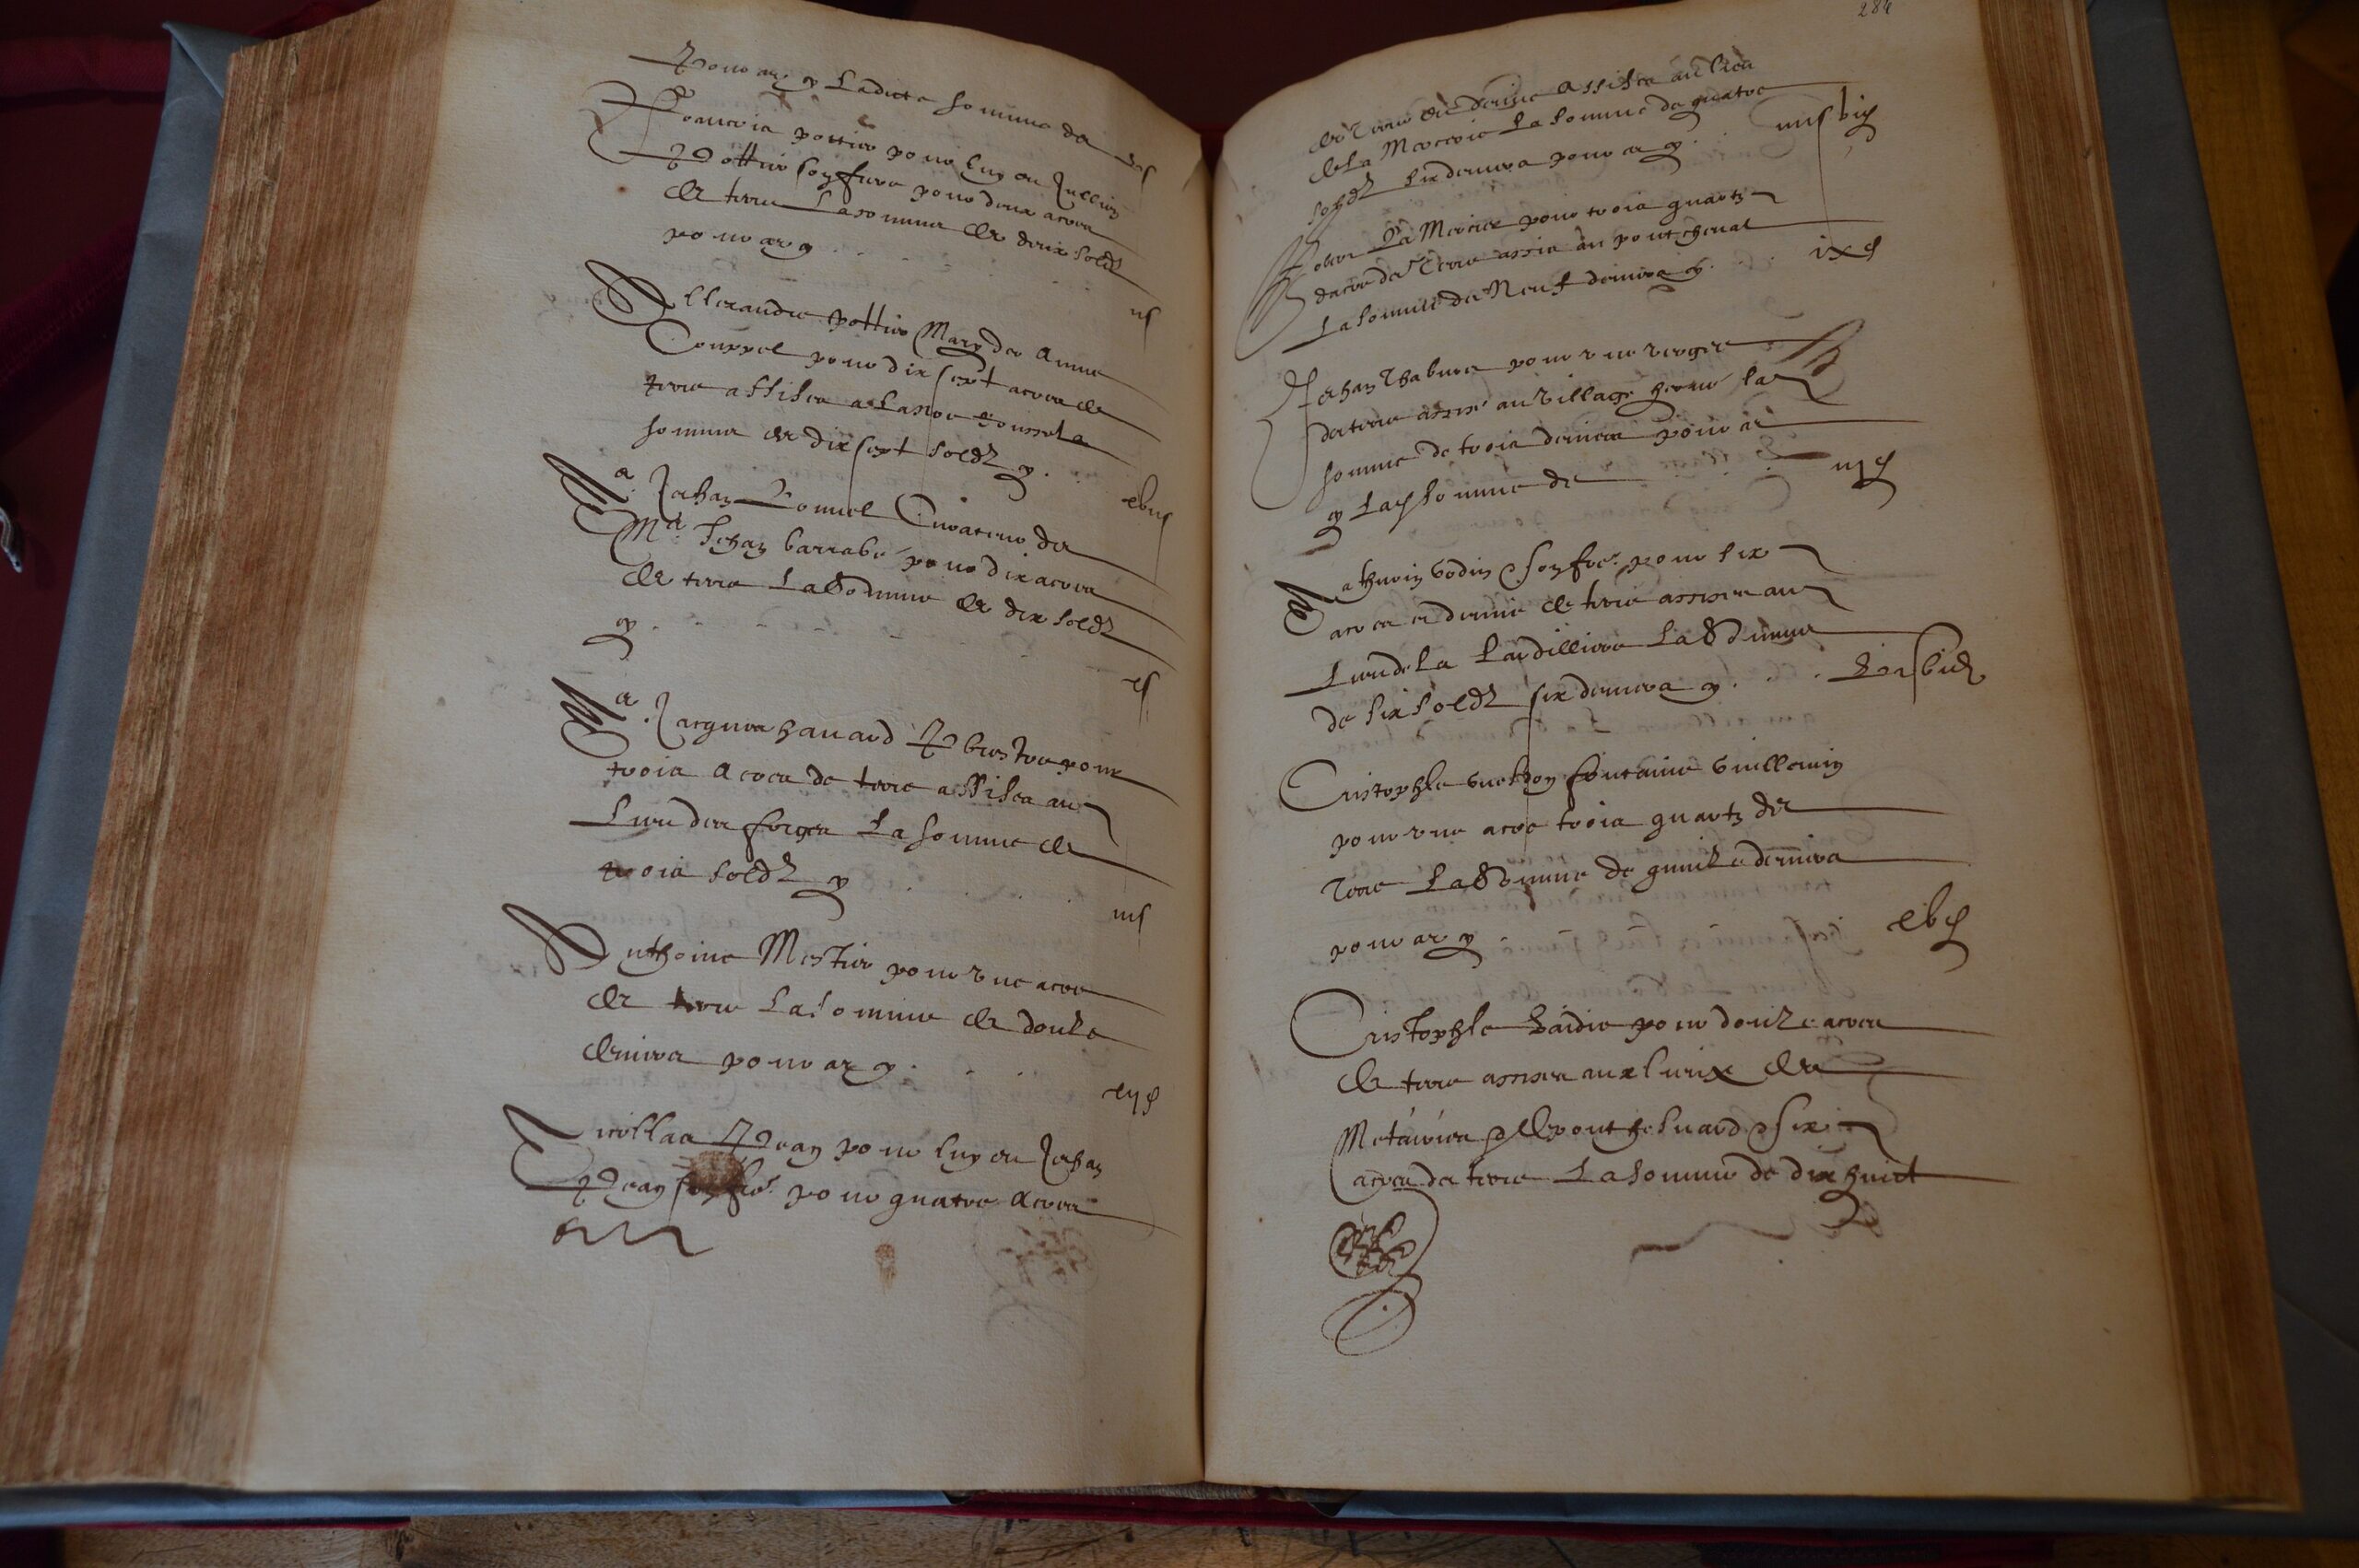 pour ce cy ladicte somme de vs
Francois pottier pour luy et Jullien
Pottier son frere pour deux acres
de terre la somme de deux soldz
pour ce cy
ijs
Allexandre pottier Mary de Anne
Couppel pour dix sept acres de
terre assises a la
somme de dix sept soldz cy
xvijs
Me Jehan Curateur de
Me Jehan barrabe pour dix acres
de terre la somme de dix soldz
cy
xs
Me Jacques hauard Pbre pour
trois acres de terre assises au
lieu des forges la somme de
trois soldz cy
iijs
Anthoine Mestier pour une acre
de terre la somme de douze
deniers pour ce cy
xijd
Nicollas Pean pour luy et Jehan
Pean son frere pour quatre acres
284
de terre et demie assises au lieu
de la Mercerie la somme de quatre
soldz six deniers pour ce cy
iiijs vjd
Le Mercier pour trois quartz
dacre de Terre assis au pont
la somme de Neuf deniers cy
ixd
Jehan pour une vergee
de terre assise au Village la
somme de trois deniers pour ce
cy lad somme de
iijd
Mathurin Godin son frere pour six
acres et demie de terre assises au
lieu de la la somme
de six soldz six deniers cy
vjs vjd
Cristophle fontaine Guillemin
pour une acre trois quartz de
terre la somme de quinze deniers
pour ce cy
xvd
Cristophle pour douze acres
de terre assises aux lieux de
Metairies six
acres de terre la somme de dix huict